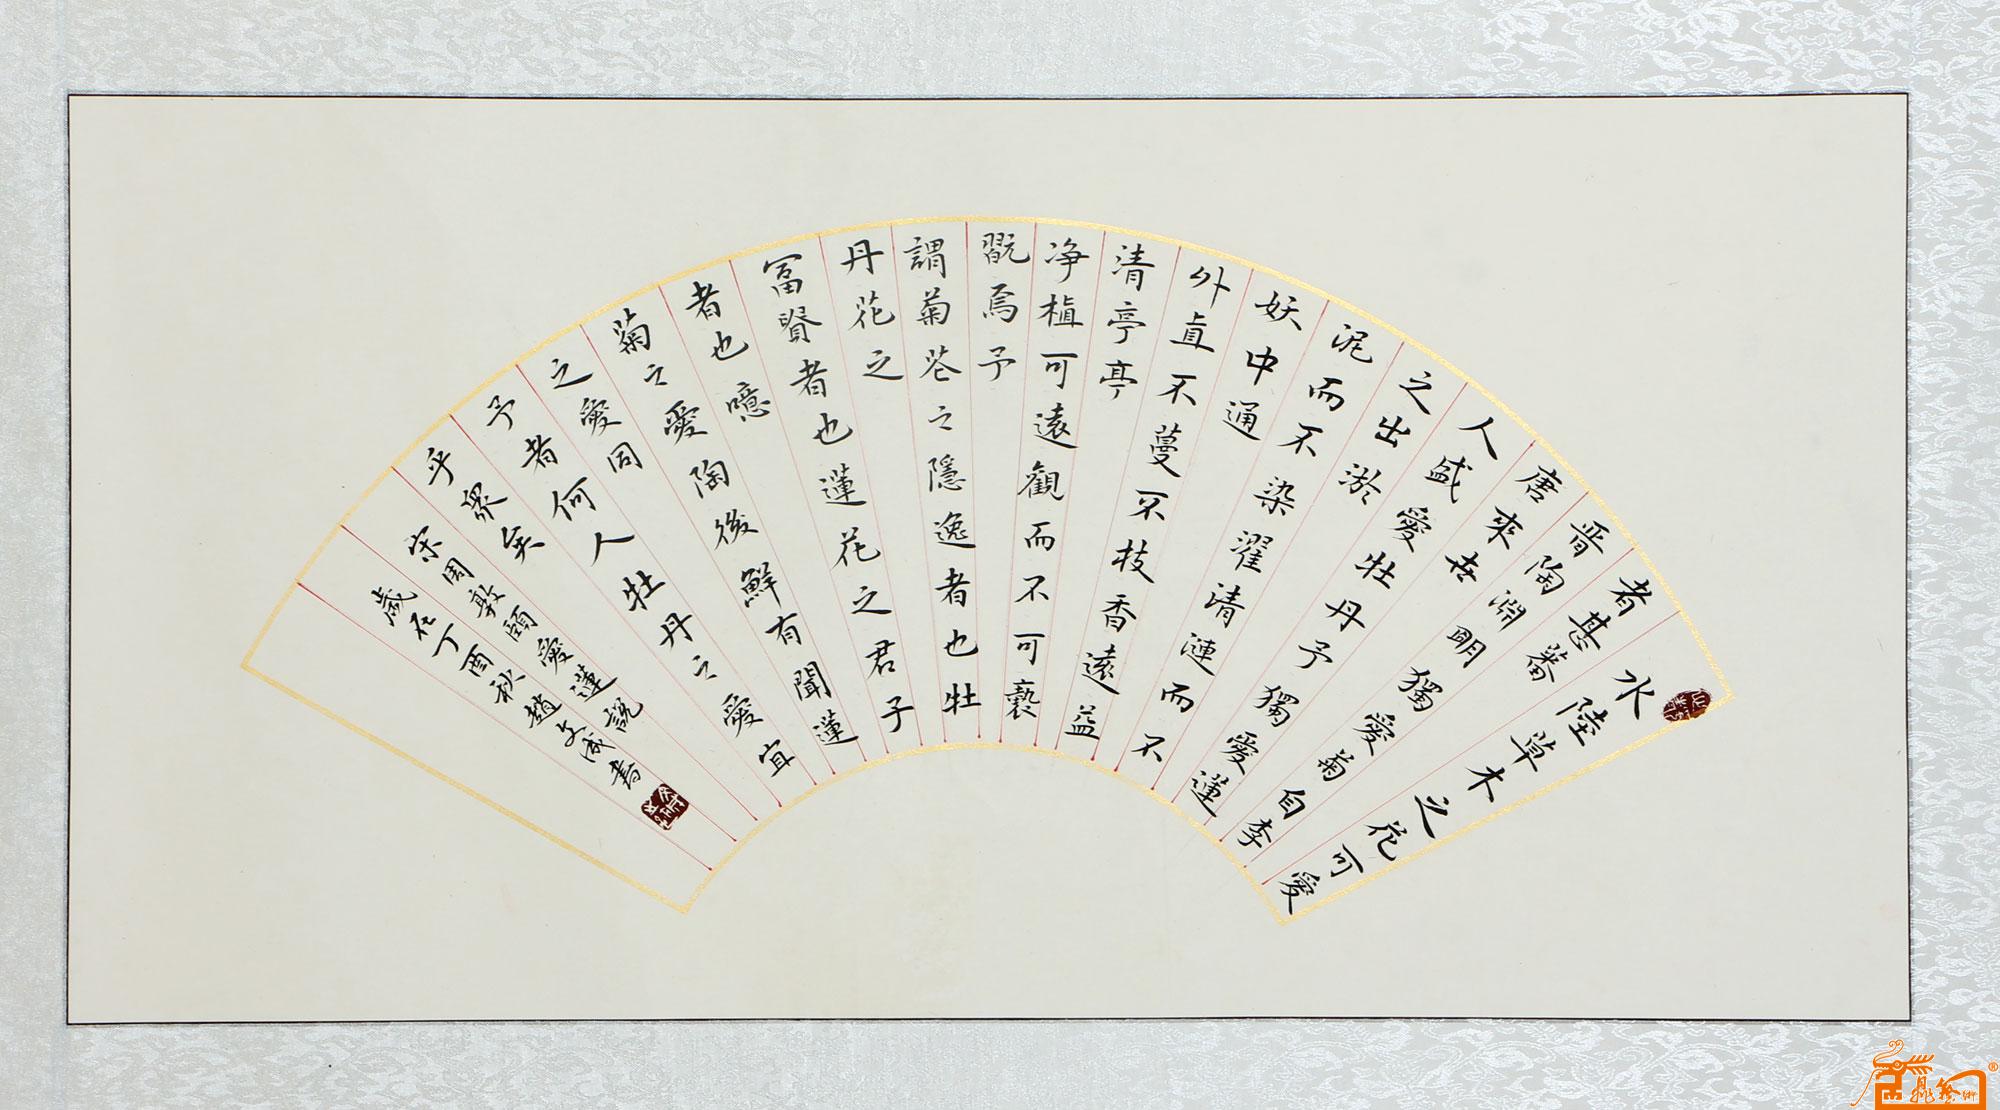 水陸草木之花可愛
者甚蕃
晋陶淵明獨愛菊自李
唐來世
人盛愛牡丹予獨愛蓮
之出淤
泥而不染濯清漣而不
妖中通
外直不蔓不枝香遠益
清亭亭
净植可遠觀而不可褻
翫焉予
謂菊花之隱逸者也牡
丹花之
冨賢者也蓮花之君子
者也噫
菊之愛陶後鮮有聞蓮
之愛同
予者何人牡丹之愛宜
乎眾矣
宋周敦頤愛蓮說
歲在丁酉秋趙文成書